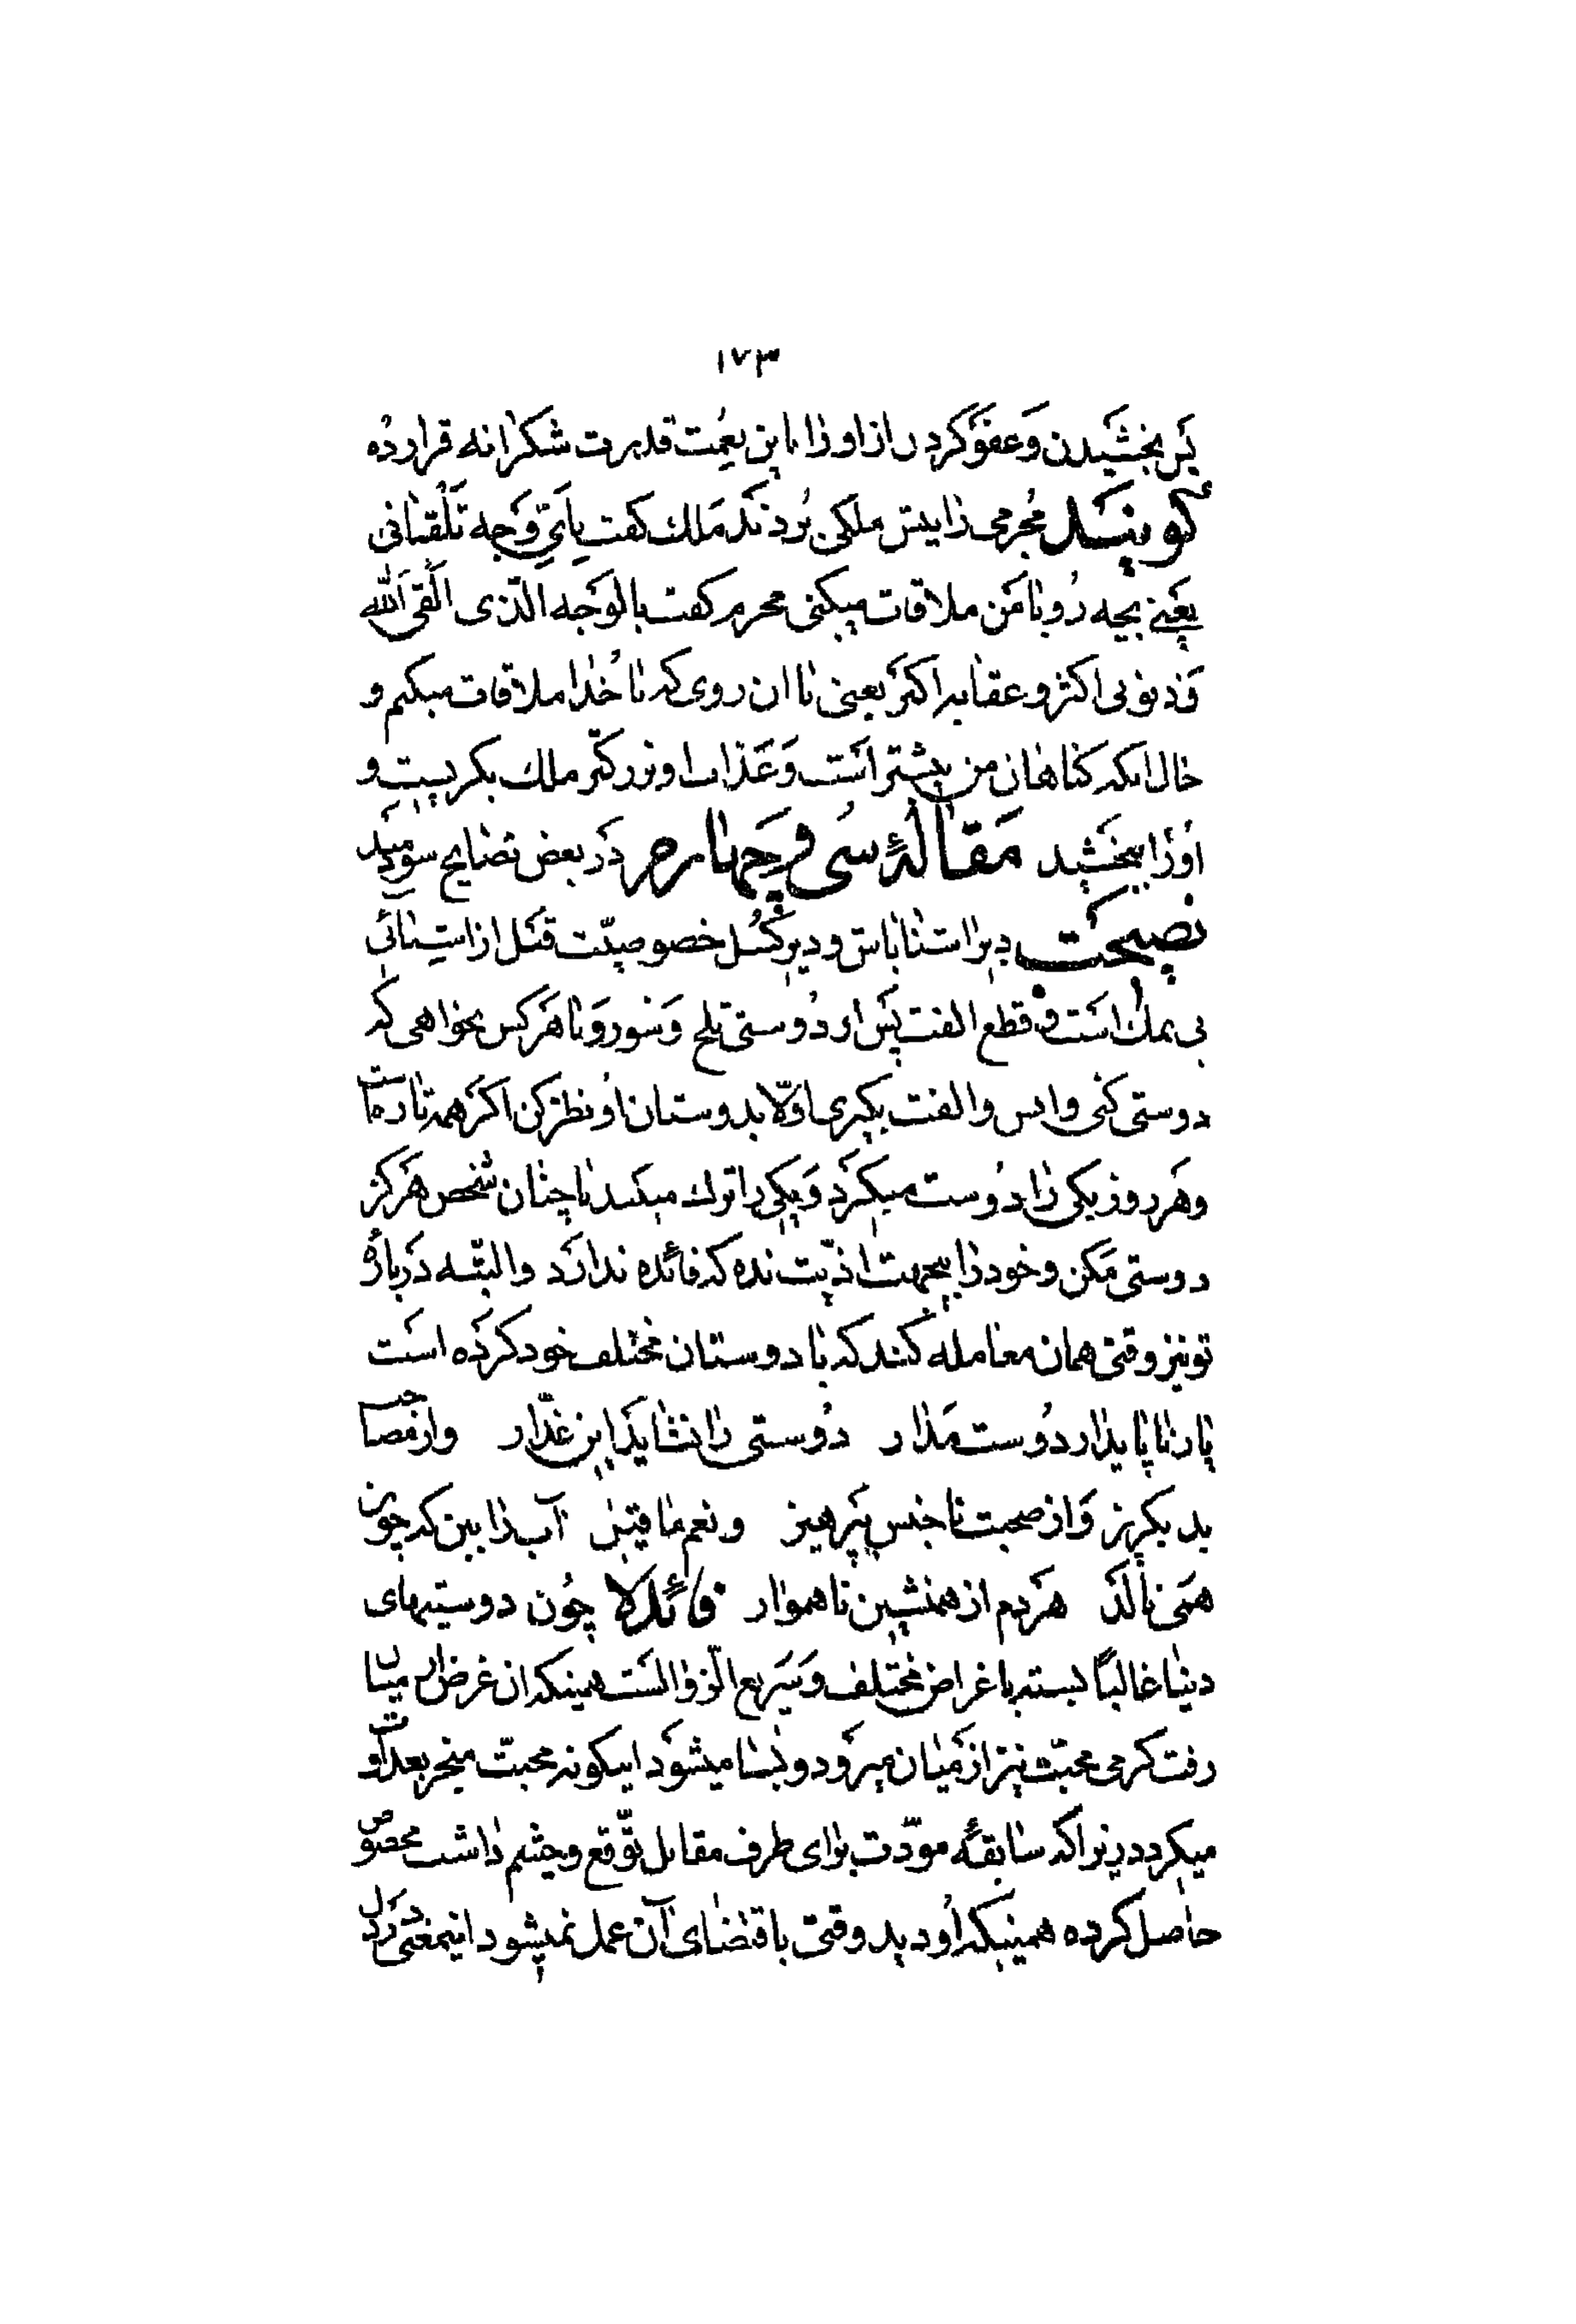 ۱۷۳
پس بخشیدن و عفو کردن از او را باین نعمت قدرت شکرانه قرار ده
گویند مجرمی را پیش ملکی بردند ملك گفت بِاَیِّ وَجه تَلْقانی
یعنی بچه رو با من ملاقات میکنی مجرم گفت بالوَجه الّذی اَلْقی اللّه
وَ ذنوبی اکثر و عقابه اکبر یعنی با ان روی که با خدا ملاقات میکنم و
حال انکه گناهان من بیشتر است و عَذاب او بزرگتر ملك بگریست و
او را ببخشید مَقالهٔ سی و چهارم در بعض نصایح سودمند
نصیحت دیر اشنا باش و دیر گسل خصوصیّت قبل از اشنائی
بی نمك است و قطع الفت پس از دوستی تلخ و شور و با هر کس بخواهی که
دوستی کنی و انس و الفت بگیری اوّلا بدوستان او نظر کن اگر همه تازه است
و هر روز یکی را دوست میگیرد و یکی را ترك میکند با چنان شخص هرگز
دوستی مکن و خود را بیجهت اذیّت نده که فائده ندارد و البتّه در بارهٔ
تو نیز وقتی همان معامله کند که با دوستان مختلف خود کرده است
یار ناپایدار دوست مدار دوستی را نشاید این غدّار و از مصاحب
بد بگریز و از صحبت ناجنس بپرهیز و نعم ما قیل آب را بین که چون
همی نالد هر دم از همنشین ناهموار فائده چون دوستیهای
دنیا غالبًا بسته باغراض مختلف و سریع الزوالست همینکه ان غرض از میان
رفت گرمی محبّت نیز از میان میرود و بسا میشود اینگونه محبّت منجر بعداوت
میگردد زیرا که سابقهٔ مودّت برای طرف مقابل توقّع و چشم داشت مخصوص
حاصل کرده همینکه او دید وقتی باقتضای آن عمل نمیشود اینمعنی در دل